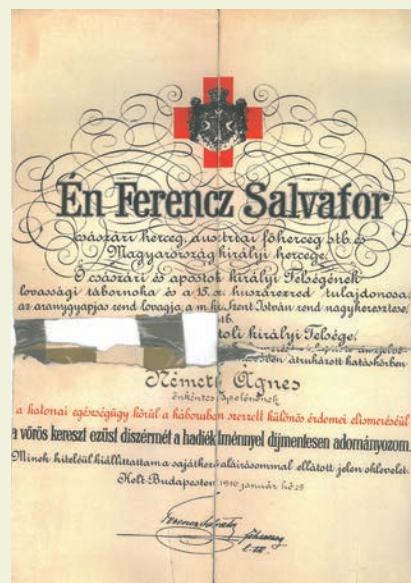 Én Ferencz Salvator
császári herceg, ausztriai főherceg stb. és
Magyarország királyi hercege,
Ő császári és apostoli királyi Felségének
lovassági tábornoka és a 15. sz. huszárezred tulajdonosa,
az aranygyapjas rend lovagja, a m. kir. Szent István rend nagykeresztese,
stb.
toli királyi Felsége,
átruházott hatáskörben
Németh Ágnes
önkéntes ápolónőnek
a katonai egészségügy körül a háboruban szerzett különös érdemei elismeréséül
a vörös kereszt ezüst diszérmét a hadiékítménnyel dijmentesen adományozom.
Minek hiteléül kiállíttattam a sajátkezű aláírásommal ellátott jelen oklevelet.
Kelt Budapesten, 1916 január hó 25
Ferencz Salvator
főherceg